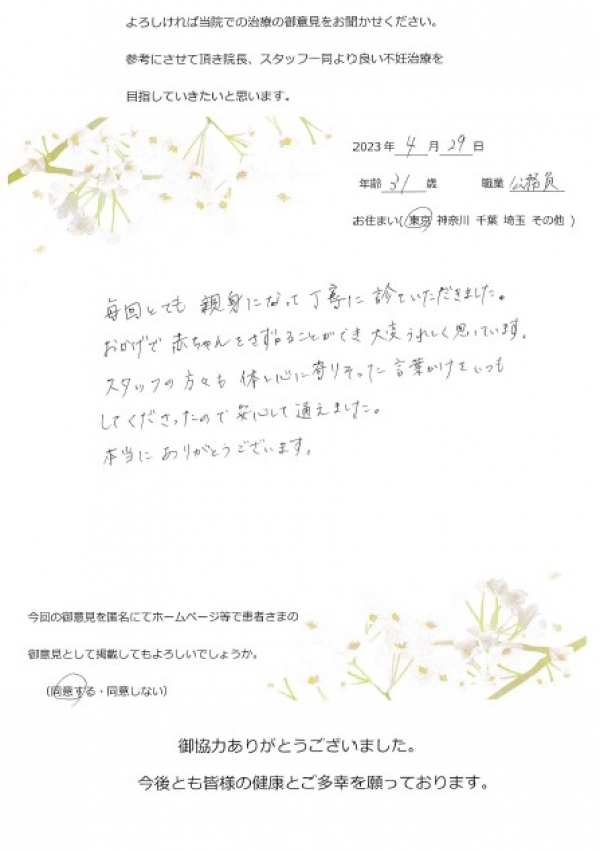 よろしければ当院での治療の御意見をお聞かせください。
参考にさせて頂き院長、スタッフ一同より良い不妊治療を
目指していきたいと思います．
2023年 4 月 29 日
年齢 31 歳 職業 公務員
お住まい( 東京 神奈川 千葉 埼玉 その他 )
毎回とても 親身になって 丁寧に 診ていただきました。
おかげで 赤ちゃんをさずかることができ 大変うれしく思っています。
スタッフの方々も 体と心に寄りそった 言葉がけをいつも
してくださったので 安心して通えました。
本当に ありがとうございます。
今回の御意見を匿名にてホームページ等で患者さまの
御意見として掲載してもよろしいでしょうか。
（同意する・同意しない）
御協力ありがとうございました。
今後とも皆様の健康とご多幸を願っております。